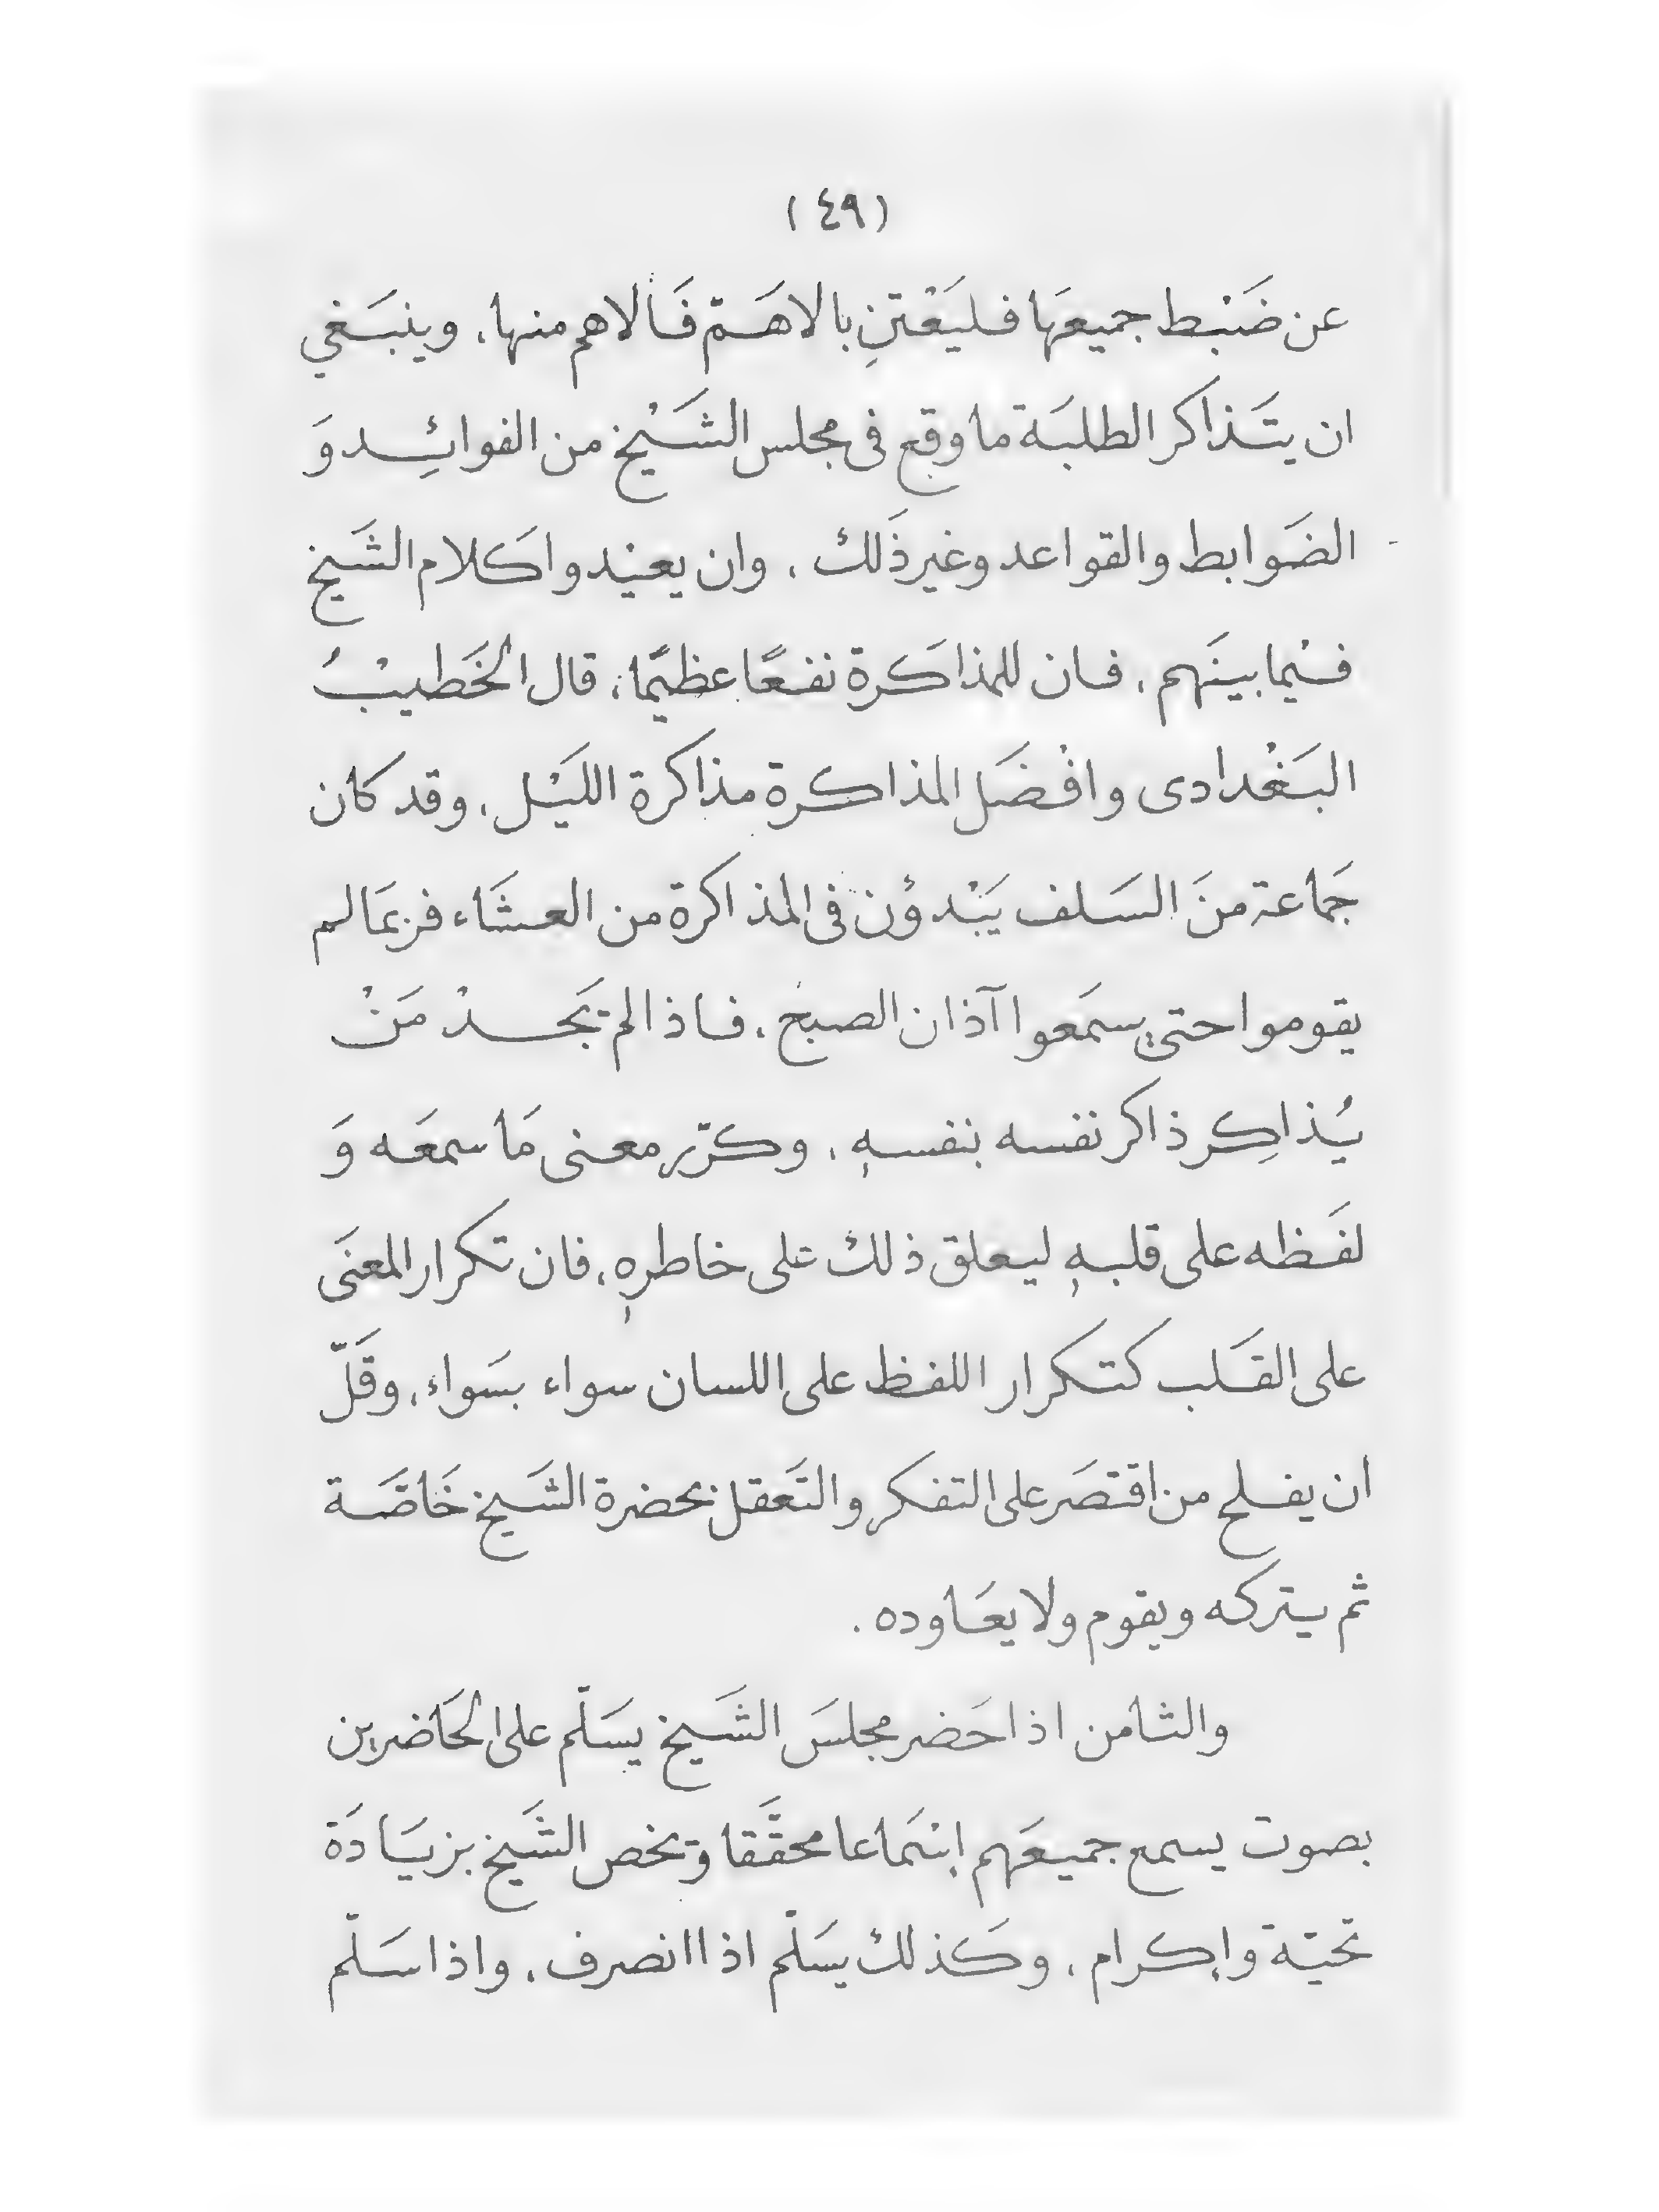 (٤٩)
عن ضَبْط جميعَها فليَعْتنِ بالاهَمّ فَالاهم منها، وينبَغي
ان يتَذاكر الطلبَة ما وقع فى مجلس الشَيْخ من الفوائِد وَ
الضَوابط والقواعد وغير ذَلك، وان يعيْدوا كَلام الشَيخ
فيْما بينَهم، فان للمذاكَرة نفعًا عظيمًا، قال الخَطيْبُ
البَغْدادى وافْضَل المذاكرة مذاكرة الليَْل، وقد كان
جَماعة منَ السَلف يَبْدؤن فى المذاكرة من العشَاء فربمَا لم
يقوموا حتى يسمَعوا آذان الصبح، فاذا لم يَجدْ مَنْ
يُذاكِر ذاكر نفسه بنفسهٖ، وكرّر معنى مَا سمعَه وَ
لفَظه على قلبهٖ ليعلق ذلك على خاطرهٖ، فان تكرار المعنَى
على القَلب كتكرار اللفظ على اللسان سواء بسَواء، وقَلّ
ان يفلح من اقتصَر على التفكر والتَعقل بحضرة الشَيخ خَاصَّة
ثم يتركه ويقوم ولا يعَاوده.
والثامن اذا حَضر مجلسَ الشَيخ يسَلّم على الحَاضرين
بصوت يسمع جميعَهم اِسْمَاعا محقَّقا وَيخص الشَيخ بزيَادَة
تحيّة واِكرام، وكَذلك يسَلّم اذا انصرف، واذا سَلّم